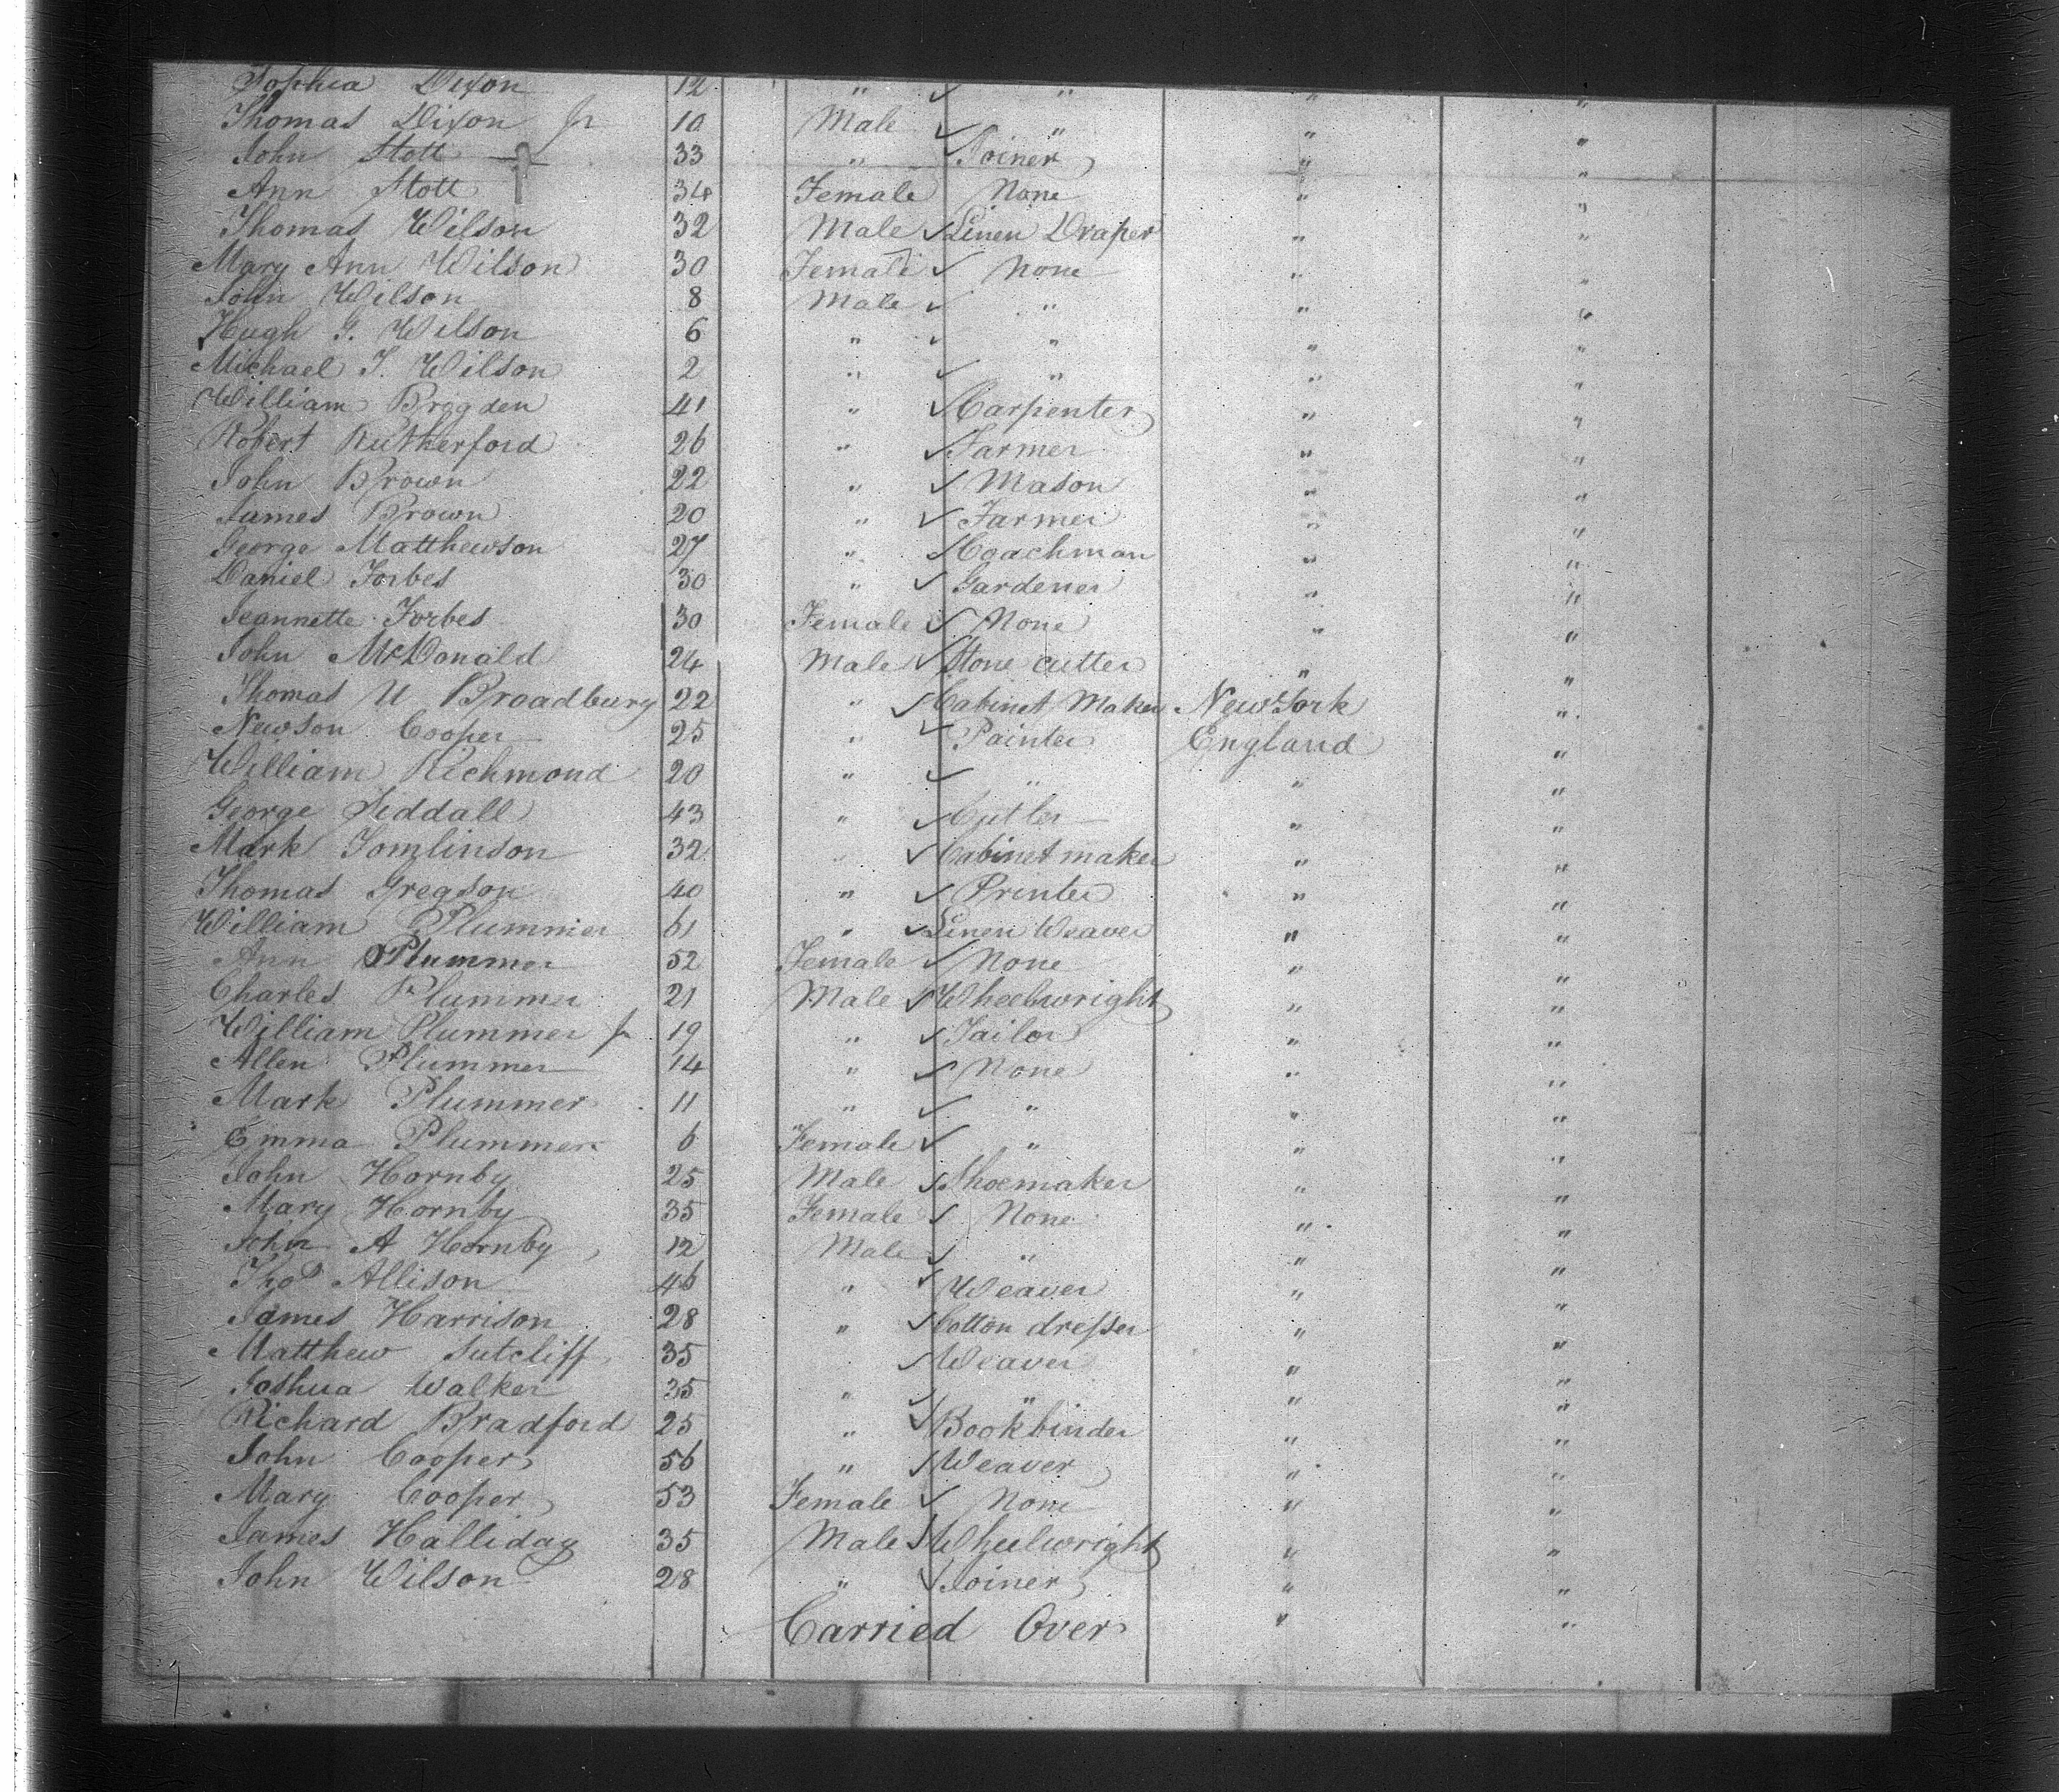 Sophia Dixon 12 " " " "
Thomas Dixon Jr 10 Male " " "
John Stott 33 " Joiner " "
Ann Stott 34 Female None " "
Thomas Wilson 32 Male Linen Draper " "
Mary Ann Wilson 30 Female None " "
John Wilson 8 Male " " "
Hugh G. Wilson 6 " " " "
Michael T. Wilson 2 " " " "
William Brogden 41 " Carpenter " "
Robert Rutherford 26 " Farmer " "
John Brown 22 " Mason " "
James Brown 20 " Farmer " "
George Matthewson 27 " Coachman " "
Daniel Forbes 30 " Gardener " "
Jeannette Forbes 30 Female None " "
John McDonald 24 Male Stone cutter " "
Thomas U Broadbury 22 " Cabinet Maker New York "
Newson Cooper 25 " Painter England "
William Richmond 20 " " " "
George Siddall 43 " Cutler " "
Mark Tomlinson 32 " Cabinet maker " "
Thomas Gregson 40 " Printer " "
William Plummer 61 " Linen Weaver " "
Ann Plummer 52 Female None " "
Charles Plummer 21 Male Wheelwright " "
William Plummer Jr 19 " Tailor " "
Allen Plummer 14 " None " "
Mark Plummer 11 " " " "
Emma Plummer 6 Female " " "
John Hornby 25 Male Shoemaker " "
Mary Hornby 35 Female None " "
John A Hornby 12 Male " " "
Thos Allison 46 " Weaver " "
James Harrison 28 " Cotton dresser " "
Matthew Sutcliff 35 Weaver " "
Joshua Walker 25 " " " "
Richard Bradford 25 " Bookbinder " "
John Cooper 56 " Weaver " "
Mary Cooper 53 Female None " "
James Halliday 35 Male Wheelwright " "
John Wilson 28 " Joiner " "
Carried Over " "